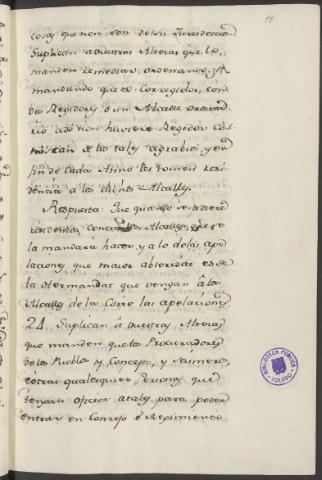 11
cosas que non son de su Jurisdiccion
Suplican a vuestras Altezas que lo
manden remediar, ordenando, y
mandando que el Corregidor, con
dos Regidores o un Alcalde ordina
rio a do non huviere Regidor co
nozcan de los tales agravios, y en
fin de cada Anno les tomen resi
dencia a los dichos Alcaldes.
Respuesta: Que quando se pidiere
residencia contra los Alcaldes, que se
la mandara hacer, y a lo de las ape
laciones que maior abtoridat es de
la Hermandat que vengan â los
Alcaldes de la Corte las apelaciones
24. Suplican â vuestras Altezas
que manden que los Procuradores
de los Pueblos y Concejos, y Sexmeros,
e otras qualesquier Personas que
tengan oficios a tales para poder
entrar en Concejo e Regimiento
BIBLIOTECA PÚBLICA
TOLEDO